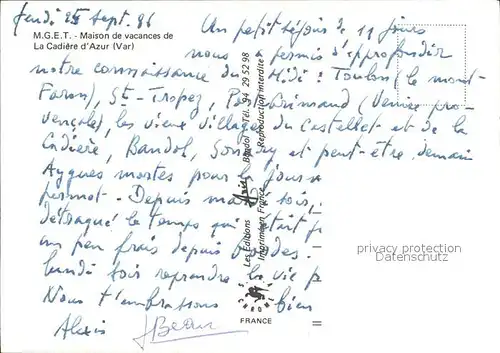 Jeudi 25 Sept. 86
M.G.E.T. - Maison de vacances de
La Cadière d'Azur (Var)
Un petit séjour de 11 jours
nous a permis d'approfondir
notre connaissance du Midi : Toulon (le mont
Faron), St-Tropez, Port Grimaud (Venise pro-
vençale), les vieux villages du Castellet et de la
Cadière, Bandol, et peut-être demain
Aygues mortes pour le
permet. - Depuis
détraqué le temps qui était
un peu frais depuis
lundi soir reprendre la vie
Nous t'embrassons bien
Alexis
Les Editions Bandol - Tel. 94 29 52 98
Imprimé en France Reproduction interdite
CHROME
FRANCE
privacy protection
Datenschutz